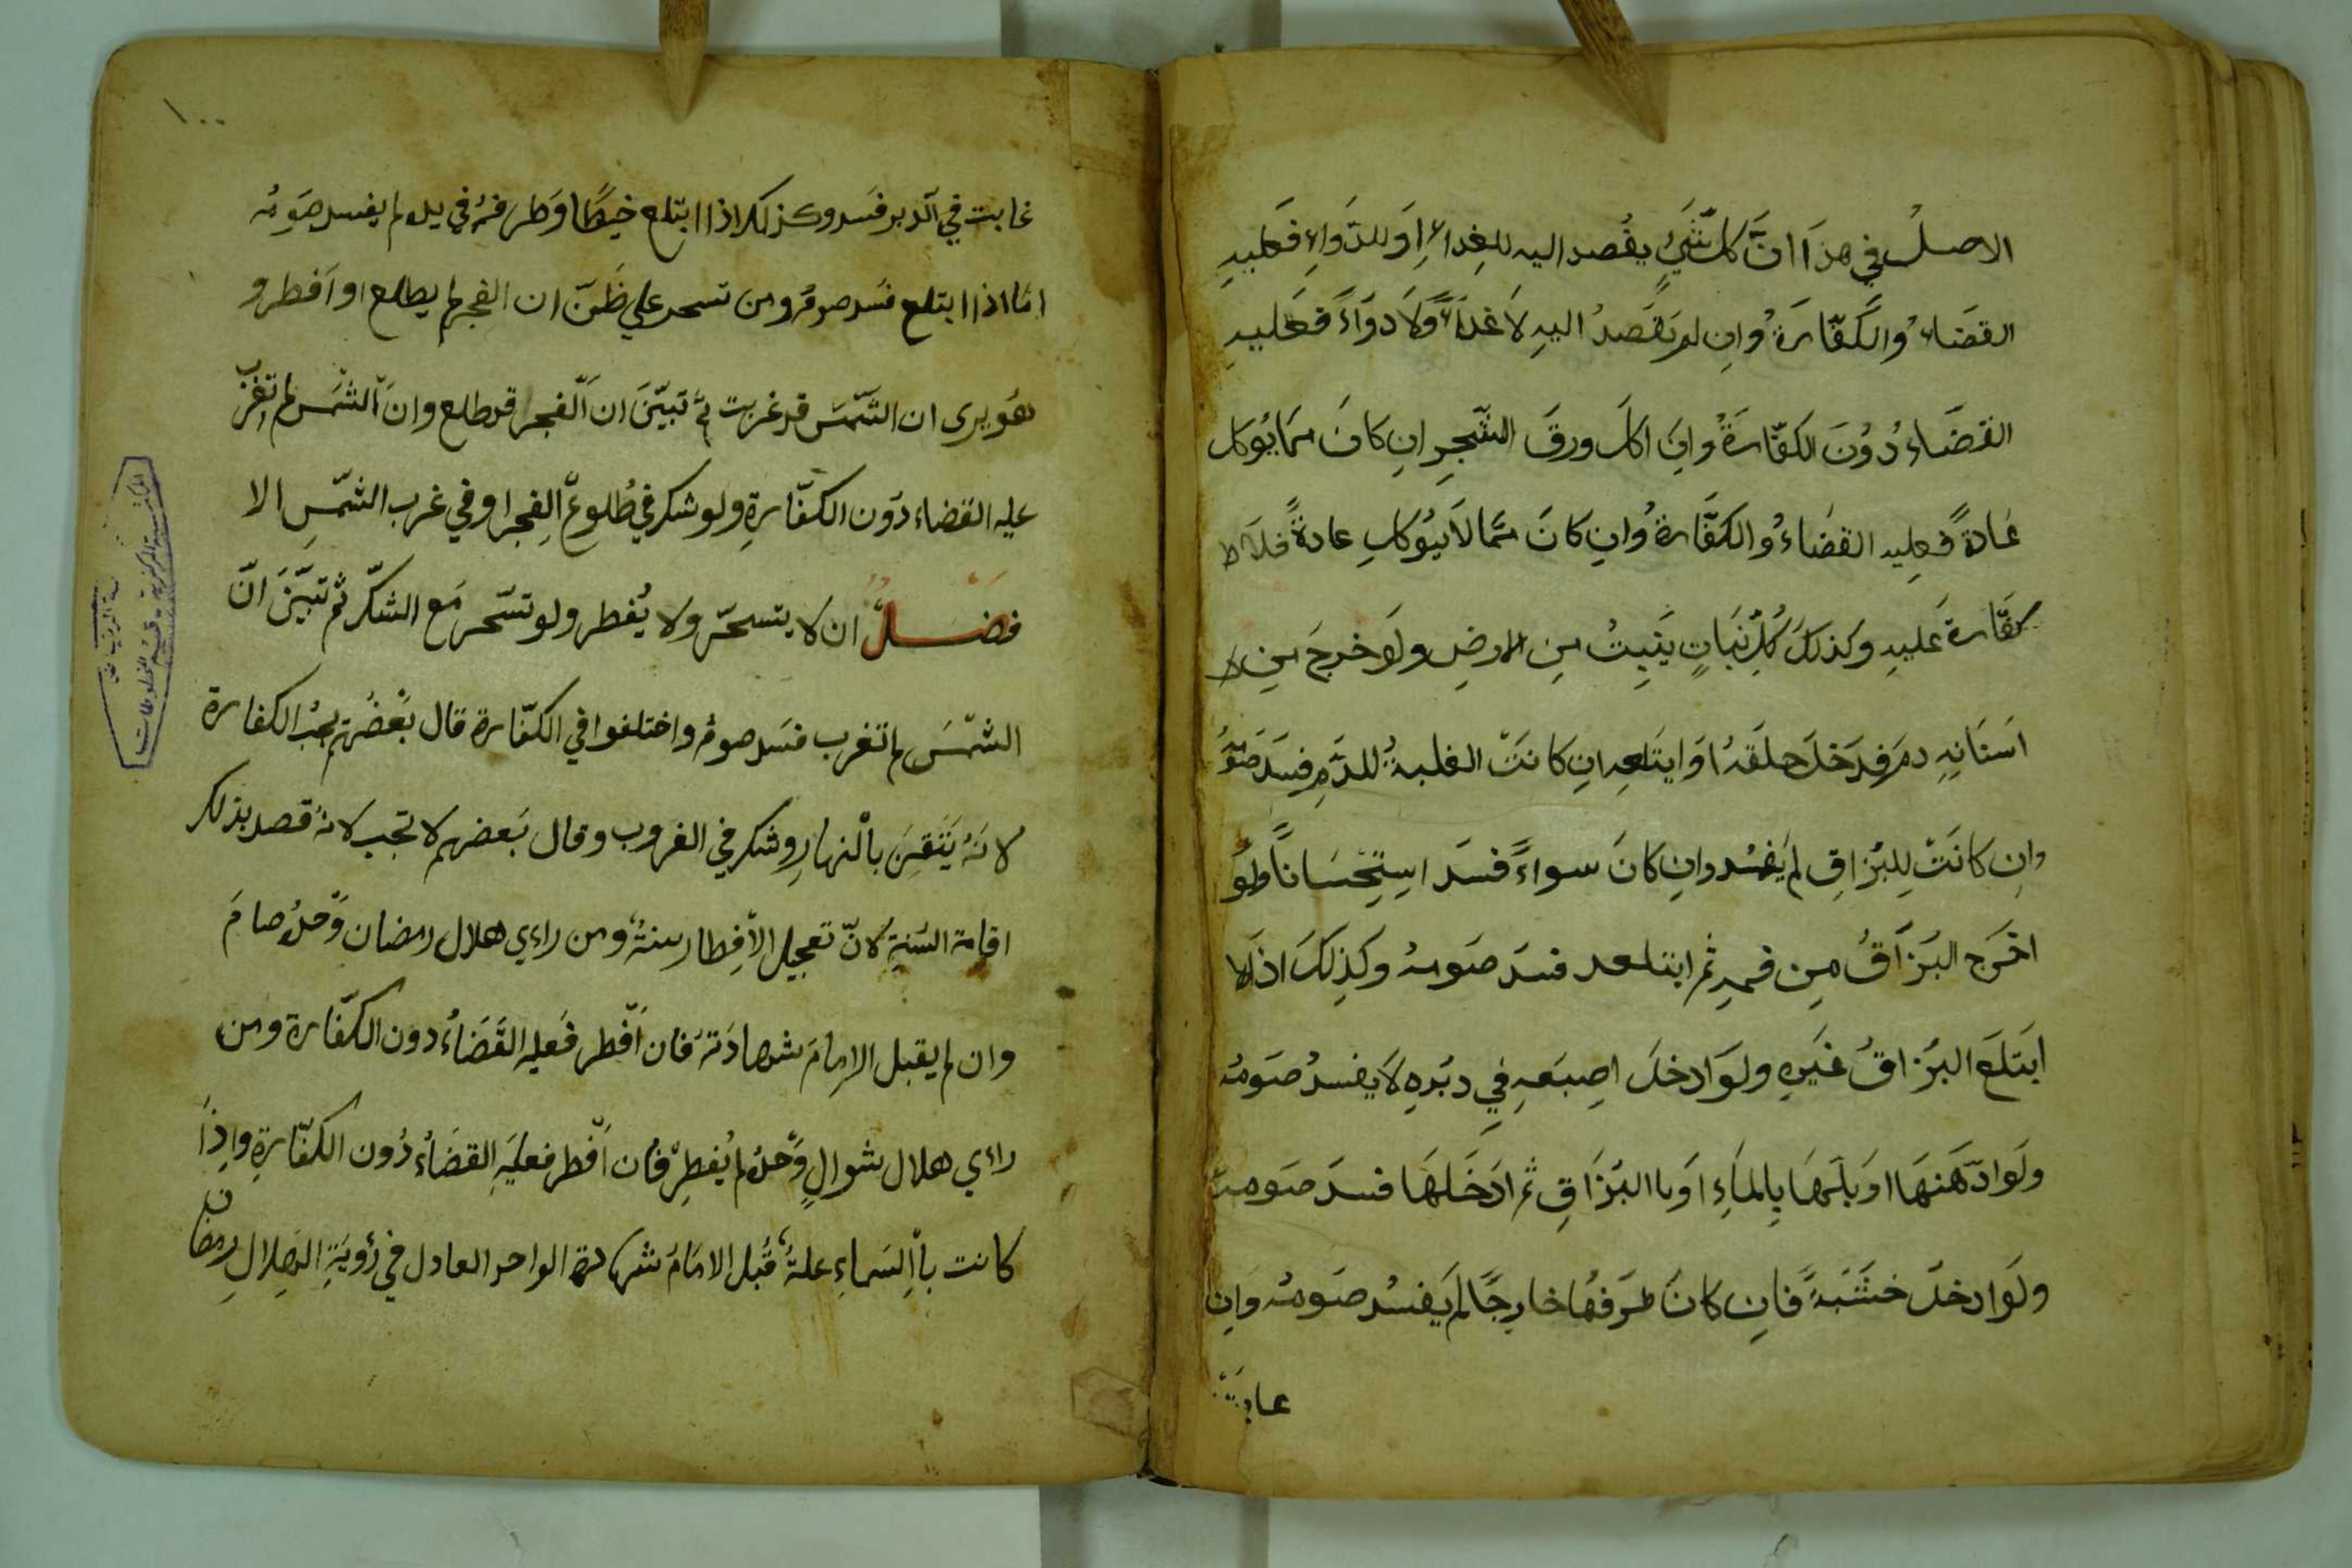 الاصلُ في هذَا انَّ كلَّ شَيْءٍ يقُصد اليه للغِداءِ اَو للدَّواءِ فعَليهِ
القضَاءُ والكَفّارَةُ وانِ لم يَقصَدُ اليهِ لاَ غدَاءً وَّلاَ دوَاءً فعَليهِ
القضَاءُ دُوْنَ الكفّارَةُ وانِ اكلَ ورقَ الشّجِرِ انِ كانَ ممَا يُوكل
عَادةً فعليه القضَاءُ والكفّارةُ وانِ كانَ ممَّا لاَ يُوكلِ عادةً فلا
كفّارة عَليهِ وكذلكَ كُلِّ نبَاتٍ يَنبِتُ مِن الارضِ ولَو خرجَ مِن
اَسنَانِهِ دمَ فدَخلَ حلقهُ اوَ ابتَلعهِ انِ كانتَ الغلبةُ للدَّمِ فسَدَ صَومُهُ
وانِ كانَتْ لِلبُزاقِ لم يَفسُد وانِ كانَ سواءً فسَد استِحْسَاناً ولَو
اخرَج البُزاَقُ مِن فمهِ ثم ابتلعه فسدَ صَومهُ وكَذلِكَ اذا
ابتَلَع البُزاقُ غَيرِهِ ولَوَ ادخلَ اصِبَعهِ في دبُرِهِ لاَ يفسدُ صَومُهُ
ولَوَ ادّهَنهَا اوَ بلّهَا بِالمَاءِ اَو باالبُزَاقِ ثم ادَخَلهَا فسدَ صَومهُ
ولَو ادخلَ خشَبَةً فانِ كانَ طَرفهُا خارِجًا لم يَفسُد صَومُهُ وَانِ
غابَتْ
١٠٠
غابت في الدّبر فسَد وكذلك اذا ابتلع خيطًا وَطرفهُ في يده لم يفسد صَومُه
امّا اذا ابتلع فسَد صومُهُ ومن تسحر علي ظَنّ ان الفجر لم يطلع او اَفطر و
هُو يرى ان الشّمسَ قد غربت ثمّ تبيّنَ ان الفجر قد طلع وانّ الشّمَس لم تغرب
عليه القضاء دوَن الكفّارةِ ولو شك في طُلوعِ الفِجر او في غرب الشّمسِ الا
فضَلُ ان لا يتسحّر ولا يُفطر ولو تسّحر مَع الشكّ ثم تبيّنَ انّ
الشمْسَ لم تغرب فسَد صومُهُ واختلفوا في الكفّارة قال بَعضُهم يجبُ الكفارة
لانهُ يَتَقِنَ بالنهارِ وشك في الغروب وقال بَعضهم لا تجب لانهُ قصد بذلك
اقامة السّنةِ لانّ تعجيل الاِفطار سنةٌ ومن راءي هلال رمضان وَّحدهُ صامَ
وان لم يقبل الامِامَ شهادَتهُ فان اَفْطر فَعليه القَضَاءُ دون الكفّارة ومن
راءي هلال شوالٍ وَّحدهُ لم يُفطِرْ فان اَفْطر فعليَهِ القضَاءُ دُون الكفّارةِ واذَِا
كانت باالسَماءِ علةٌ قُبل الامَامُ شهادة الواحد العادل في رُويَةِ الهِلالِ رمضان